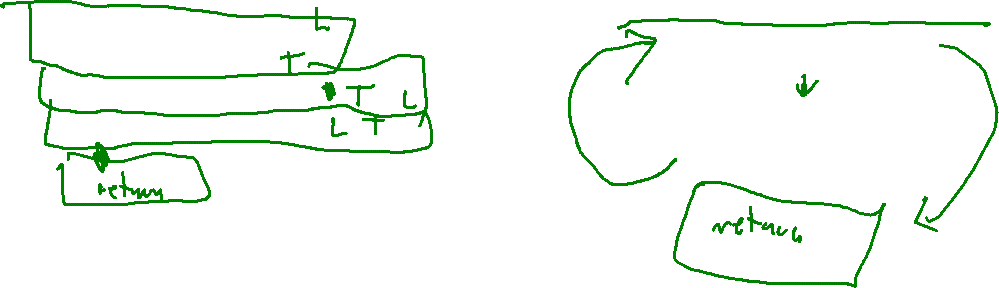 L
T
T L
L T
return
return